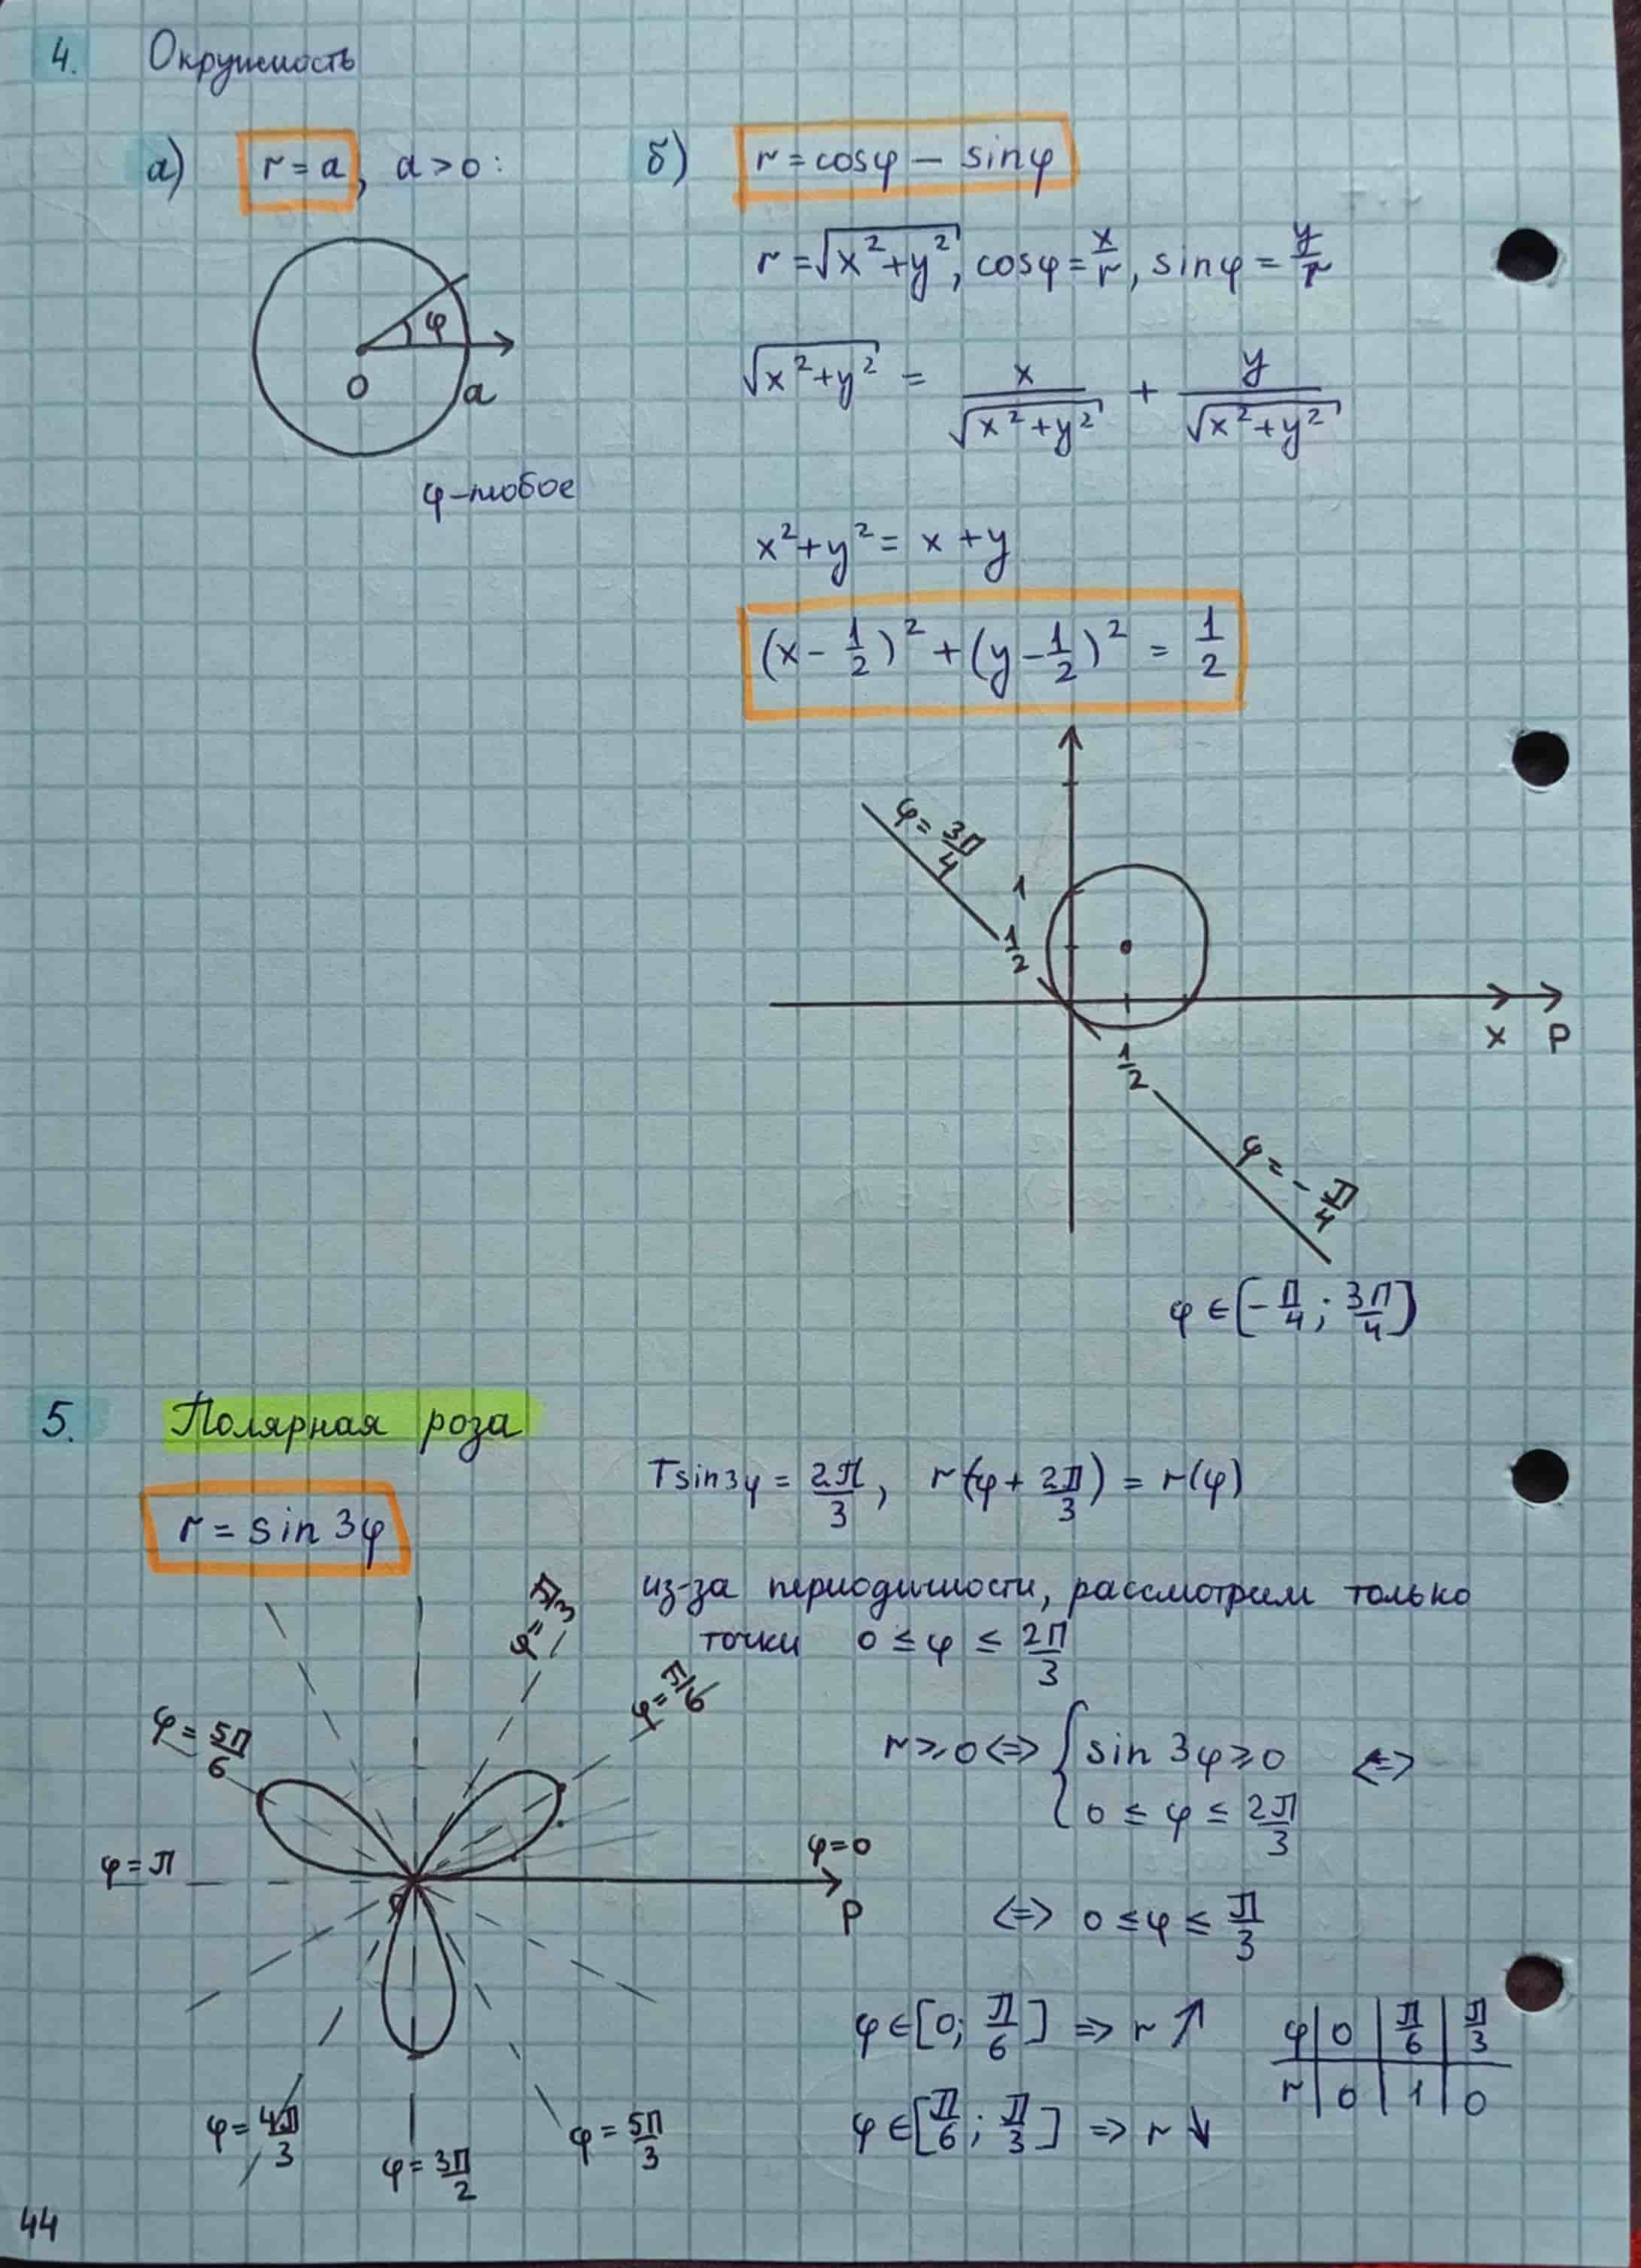 4. Окружность
а) r = a, a > 0 :
O φ a
φ – любое
б) r = cosφ − sinφ
r = √(x² + y²), cosφ = x/r, sinφ = y/r
√(x² + y²) = x/√(x² + y²) + y/√(x² + y²)
x² + y² = x + y
(x − 1/2)² + (y − 1/2)² = 1/2
φ = 3π/4
1
1/2
1/2
x P
φ = −π/4
φ ∈ [−π/4 ; 3π/4]
5. Полярная роза
r = sin 3φ
T sin3φ = 2π/3, r(φ + 2π/3) = r(φ)
из-за периодичности, рассмотрим только
точки 0 ≤ φ ≤ 2π/3
r ≥ 0 ⇔ { sin 3φ ≥ 0 ⇔
0 ≤ φ ≤ 2π/3
⇔ 0 ≤ φ ≤ π/3
φ ∈ [0; π/6] ⇒ r ↑
φ ∈ [π/6 ; π/3] ⇒ r ↓
φ | 0 | π/6 | π/3
r | 0 | 1 | 0
φ = π/3
φ = π/6
φ = 5π/6
φ = π
φ = 0
P
φ = 4π/3
φ = 3π/2
φ = 5π/3
44